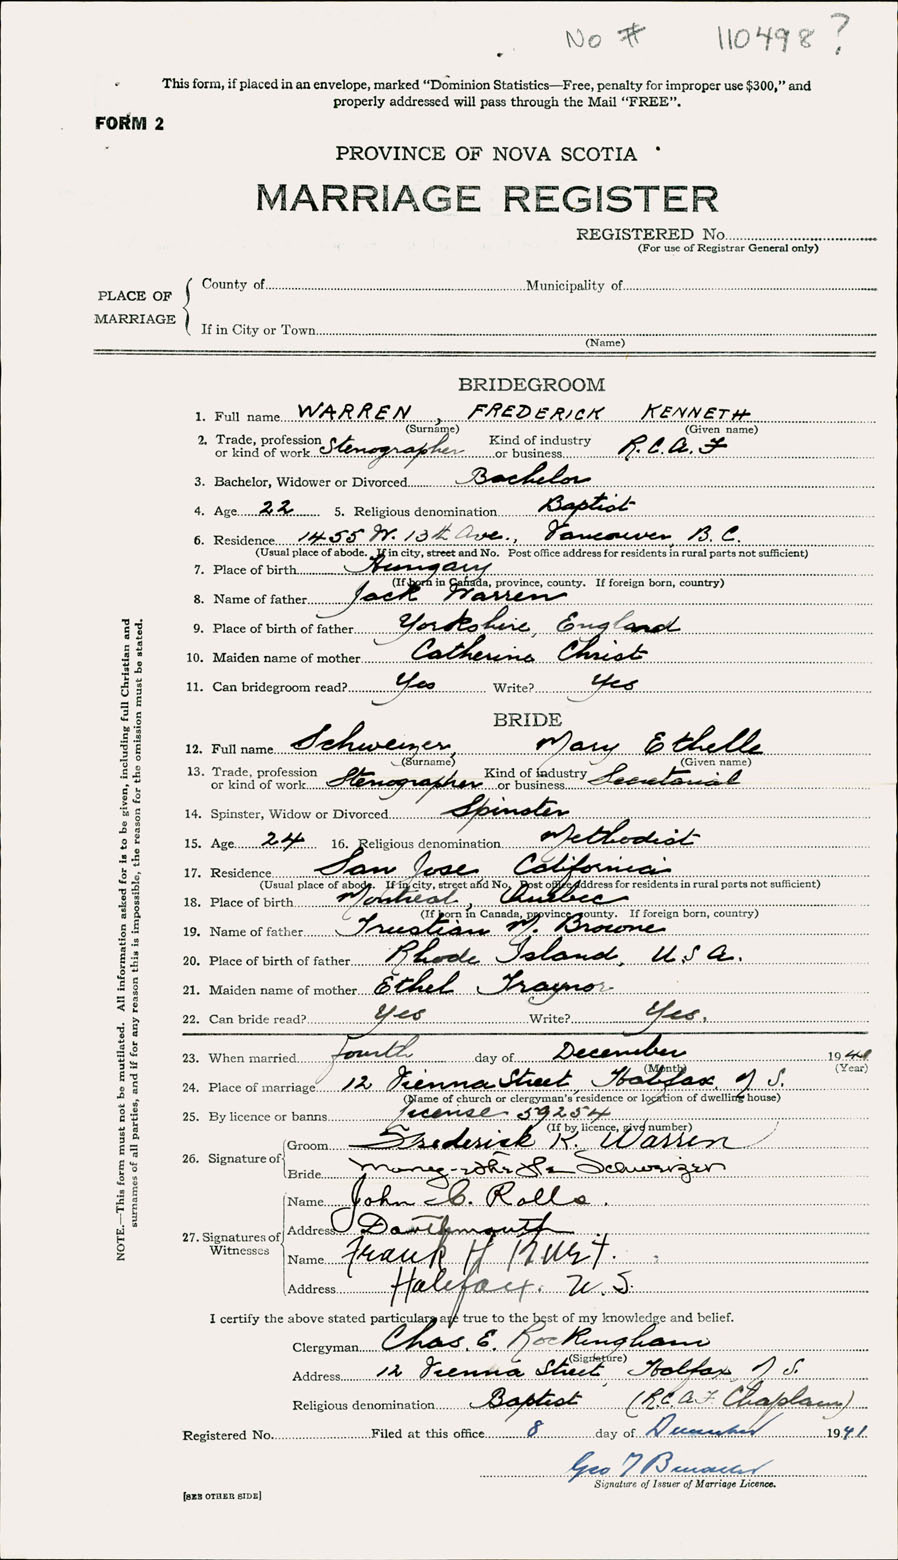 No # 110498?
This form, if placed in an envelope, marked “Dominion Statistics—Free, penalty for improper use $300,” and
properly addressed will pass through the Mail “FREE”.
FORM 2
PROVINCE OF NOVA SCOTIA
MARRIAGE REGISTER
REGISTERED No.
(For use of Registrar General only)
PLACE OF MARRIAGE
County of Municipality of
If in City or Town
(Name)
BRIDEGROOM
1. Full name WARREN, FREDERICK KENNETH
(Surname) (Given name)
2. Trade, profession or kind of work Stenographer Kind of industry or business R.C.A.F
3. Bachelor, Widower or Divorced Bachelor
4. Age 22 5. Religious denomination Baptist
6. Residence 1455 W. 13th Ave., Vancouver, B.C.
(Usual place of abode. If in city, street and No. Post office address for residents in rural parts not sufficient)
7. Place of birth Hungary
(If born in Canada, province, county. If foreign born, country)
8. Name of father Jack Warren
9. Place of birth of father Yorkshire, England
10. Maiden name of mother Catherine Christ
11. Can bridegroom read? Yes Write? Yes
BRIDE
12. Full name Schweizer, Mary Ethelle
(Surname) (Given name)
13. Trade, profession or kind of work Stenographer Kind of industry or business Secretarial
14. Spinster, Widow or Divorced Spinster
15. Age 24 16. Religious denomination Methodist
17. Residence San Jose California
(Usual place of abode. If in city, street and No. Post office address for residents in rural parts not sufficient)
18. Place of birth Montreal, Quebec
(If born in Canada, province county. If foreign born, country)
19. Name of father M. Browne
20. Place of birth of father Rhode Island, U S A.
21. Maiden name of mother Ethel Traynor
22. Can bride read? Yes Write? Yes.
23. When married fourth day of December 1941
(Month) (Year)
24. Place of marriage 12 Vienna Street, Halifax, N.S.
(Name of church or clergyman's residence or location of dwelling house)
25. By licence or banns License 59254
(If by licence, give number)
26. Signature of
Groom Frederick K. Warren
Bride Schweizer
27. Signatures of Witnesses
Name John C. Rolls.
Address Dartmouth
Name Frank H
Address Halifax. N.S.
I certify the above stated particulars are true to the best of my knowledge and belief.
Clergyman Chas. E. Rockingham
(Signature)
Address 12 Vienna Street, Halifax N.S.
Religious denomination Baptist (R.C.A.F. Chaplain)
Registered No. Filed at this office 8 day of December 1941
Geo T
Signature of Issuer of Marriage Licence.
[SEE OTHER SIDE]
NOTE.—This form must not be mutilated. All information asked for is to be given, including full Christian and
surnames of all parties, and if for any reason this is impossible, the reason for the omission must be stated.